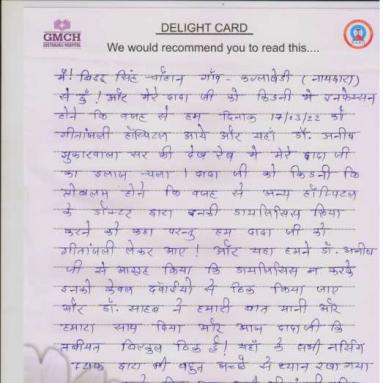 GMCH
GEETANJALI HOSPITAL
DELIGHT CARD
We would recommend you to read this....
मैं! सिंह चौहान गाँव - (नाथद्वारा)
से हुँ! और मेरे दादा जी को किडनी में इनफेक्सन
होने कि वजह से हम दिनांक 17/03/22 को
गीतांजली हॉस्पिटल आये और यहां डॉ. अनीष
झुकारवाला सर की देख रेख में मेरे दादा जी
का इलाज चला! दादा जी को किडनी कि
प्रोबलम होने कि वजह से अन्य हॉस्पिटल
के डॉक्टर द्वारा इनकी डायलिसिस किया
करने को कहा परन्तु हम दादा जी को
गीतांजली लेकर आए! और यहा हमने डॉ. अनीष
जी से आग्रह किया कि डायलिसिस न करके
इनको केवल दवाईयो से ठिक किया जाए
और डॉ. साहब ने हमारी बात मानी और
हमारा साथ दिया और आज दादाजी कि
तबीयत बिल्कुल ठिक है! यहाँ के सभी नर्सिंग
स्टाफ द्वारा भी बहुत अच्छे से ध्यान रखा गया